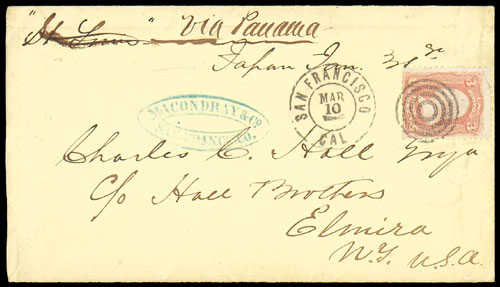 "St Louis" via Panama
Japan Jan. 31st
SAN FRANCISCO
MAR
10
CAL
MACONDRAY & Co
SAN FRANCISCO.
3 3
Charles C. Hall Esqr
C/o Hall Brothers
Elmira
N.Y. U.S.A.